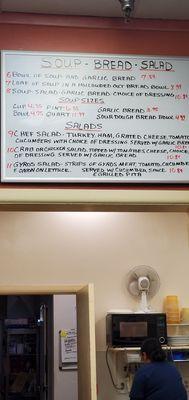 SOUP - BREAD - SALAD
6 BOWL OF SOUP AND GARLIC BREAD 7.89
7 LOAF OF SOUP IN A HOLLOWED OUT BREAD BOWL
8 SOUP SALAD GARLIC BREAD CHOICE OF DRESSING 10.89
SOUP SIZES
CUP 4.35 PINT GARLIC BREAD
BOWL QUART 11.99 SOUR DOUGH BREAD BOWL 4.99
SALADS
9 CHEF SALAD - TURKEY, HAM, GRATED CHEESE, TOMATO
CUCUMBERS WITH CHOICE OF DRESSING SERVED W/ GARLIC BREAD
10 CRAB OR CHICKEN SALAD, TOPPED W/ TOMATOES, CHEESE, CHOICE
OF DRESSING SERVED W/ GARLIC BREAD. 10.89
11 GYROS SALAD - STRIPS OF GYROS MEAT, TOMATO, CUCUMBER
& ONION ON LETTUCE. SERVED W/ CUCUMBER SAUCE 10.89
& GRILLED PITA